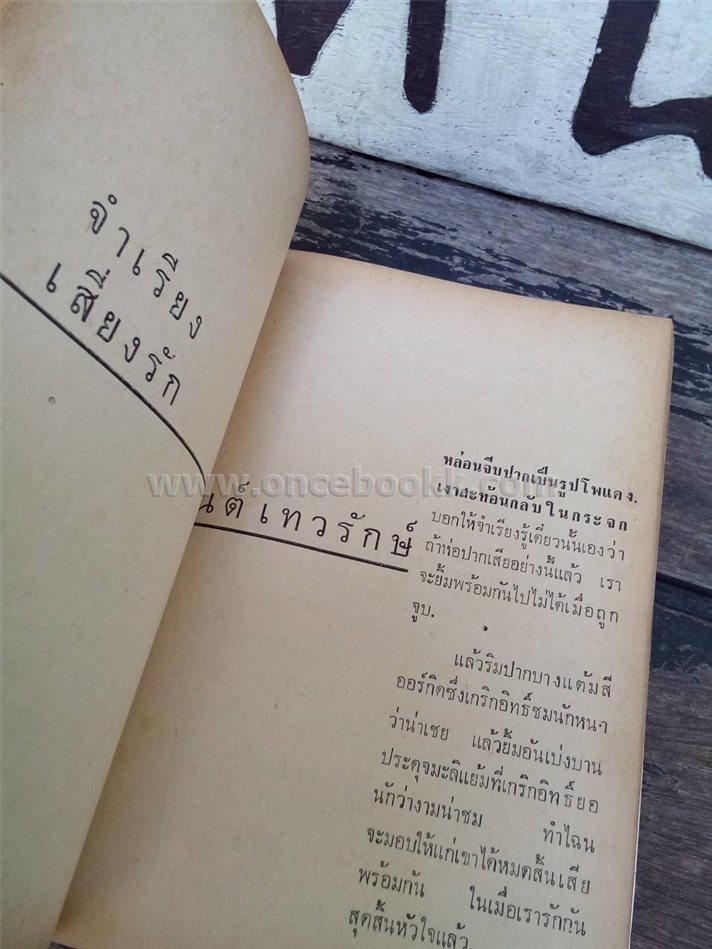 จำเรียง
เสียงรัก
นต์เทวรักษ์
www.oncebookk.com
หล่อนจีบปากเป็นรูปโพแดง.
เงาสะท้อนกลับในกระจก
บอกให้จำเรียงรู้เดี๋ยวนั้นเองว่า
ถ้าห่อปากเสียอย่างนี้แล้ว เรา
จะยิ้มพร้อมกันไปไม่ได้เมื่อถูก
จูบ.
แล้วริมปากบางแต้มสี
ออร์กิดซึ่งเกริกอิทธิ์ชมนักหนา
ว่าน่าเชย แล้วยิ้มอันเบ่งบาน
ประดุจมะลิแย้มที่เกริกอิทธิ์ยอ
นักว่างามน่าชม ทำไฉน
จะมอบให้แก่เขาได้หมดสิ้นเสีย
พร้อมกัน ในเมื่อเรารักกัน
สุดสิ้นหัวใจแล้ว